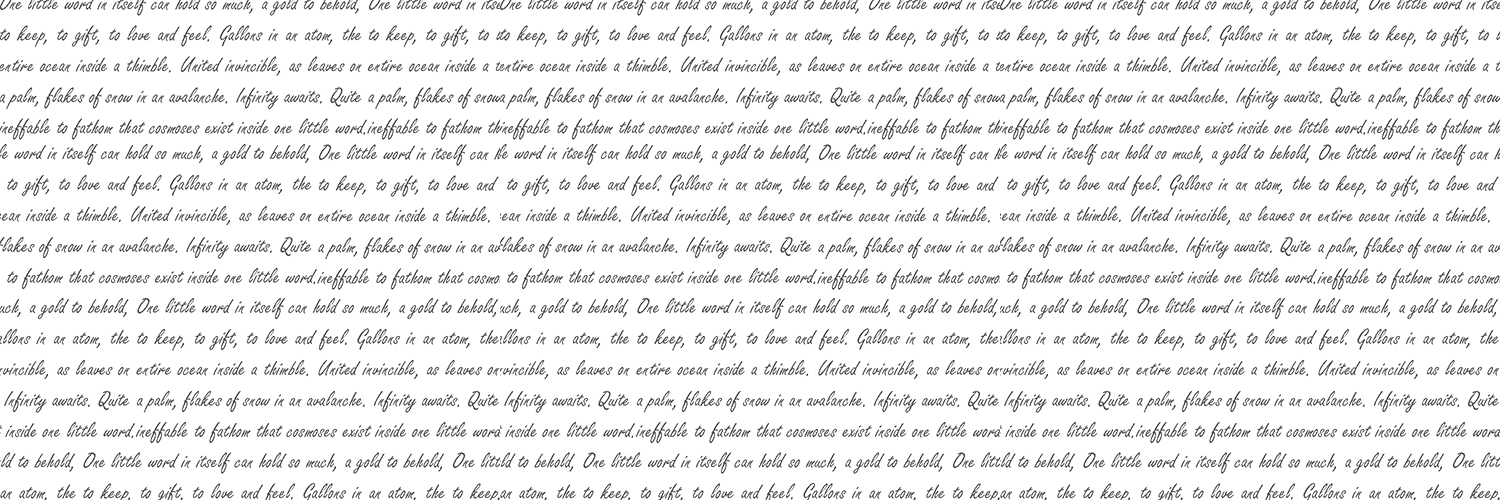 One little word in itself can hold so much, a gold to behold, One little word in itsOne little word in itself can hold so much, a gold to behold, One little word in itsOne little word in itself can hold so much, a gold to behold, One little word in its
to keep, to gift, to love and feel. Gallons in an atom, the to keep, to gift, to to keep, to gift, to love and feel. Gallons in an atom, the to keep, to gift, to to keep, to gift, to love and feel. Gallons in an atom, the to keep, to gift, to
entire ocean inside a thimble. United invincible, as leaves on entire ocean inside a entire ocean inside a thimble. United invincible, as leaves on entire ocean inside a entire ocean inside a thimble. United invincible, as leaves on entire ocean inside a
a palm, flakes of snow in an avalanche. Infinity awaits. Quite a palm, flakes of snow a palm, flakes of snow in an avalanche. Infinity awaits. Quite a palm, flakes of snow a palm, flakes of snow in an avalanche. Infinity awaits. Quite a palm, flakes of snow
ineffable to fathom that cosmoses exist inside one little word.ineffable to fathom thineffable to fathom that cosmoses exist inside one little word.ineffable to fathom thineffable to fathom that cosmoses exist inside one little word.ineffable to fathom th
le word in itself can hold so much, a gold to behold, One little word in itself can le word in itself can hold so much, a gold to behold, One little word in itself can le word in itself can hold so much, a gold to behold, One little word in itself can h
to gift, to love and feel. Gallons in an atom, the to keep, to gift, to love and to gift, to love and feel. Gallons in an atom, the to keep, to gift, to love and to gift, to love and feel. Gallons in an atom, the to keep, to gift, to love and
ean inside a thimble. United invincible, as leaves on entire ocean inside a thimble. ean inside a thimble. United invincible, as leaves on entire ocean inside a thimble. ean inside a thimble. United invincible, as leaves on entire ocean inside a thimble.
flakes of snow in an avalanche. Infinity awaits. Quite a palm, flakes of snow in an avflakes of snow in an avalanche. Infinity awaits. Quite a palm, flakes of snow in an avflakes of snow in an avalanche. Infinity awaits. Quite a palm, flakes of snow in an av
to fathom that cosmoses exist inside one little word.ineffable to fathom that cosmo to fathom that cosmoses exist inside one little word.ineffable to fathom that cosmo to fathom that cosmoses exist inside one little word.ineffable to fathom that cosmo
uch, a gold to behold, One little word in itself can hold so much, a gold to behold,uch, a gold to behold, One little word in itself can hold so much, a gold to behold,uch, a gold to behold, One little word in itself can hold so much, a gold to behold,
allons in an atom, the to keep, to gift, to love and feel. Gallons in an atom, thellons in an atom, the to keep, to gift, to love and feel. Gallons in an atom, thellons in an atom, the to keep, to gift, to love and feel. Gallons in an atom, the
vincible, as leaves on entire ocean inside a thimble. United invincible, as leaves onvincible, as leaves on entire ocean inside a thimble. United invincible, as leaves onvincible, as leaves on entire ocean inside a thimble. United invincible, as leaves on
Infinity awaits. Quite a palm, flakes of snow in an avalanche. Infinity awaits. Quite Infinity awaits. Quite a palm, flakes of snow in an avalanche. Infinity awaits. Quite Infinity awaits. Quite a palm, flakes of snow in an avalanche. Infinity awaits. Quite
inside one little word.ineffable to fathom that cosmoses exist inside one little word inside one little word.ineffable to fathom that cosmoses exist inside one little word inside one little word.ineffable to fathom that cosmoses exist inside one little word
ld to behold, One little word in itself can hold so much, a gold to behold, One littld to behold, One little word in itself can hold so much, a gold to behold, One littld to behold, One little word in itself can hold so much, a gold to behold, One litt
an atom, the to keep, to gift, to love and feel. Gallons in an atom, the to keep,an atom, the to keep, to gift, to love and feel. Gallons in an atom, the to keep,an atom, the to keep, to gift, to love and feel. Gallons in an atom, the to keep